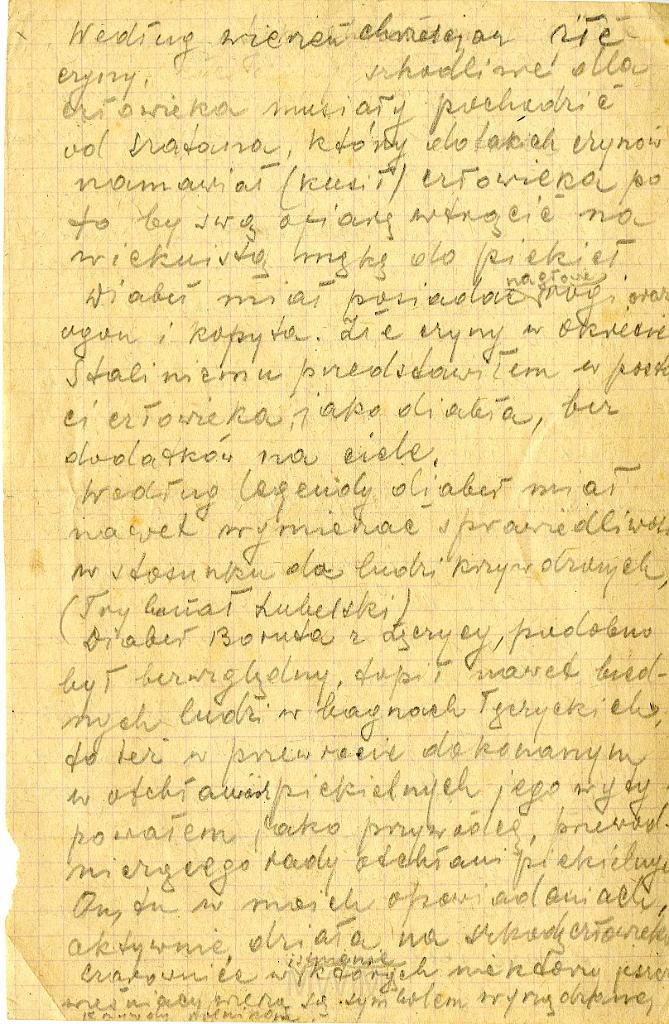 Według wierzeń chrześcijan złe
czyny, szkodliwe dla
człowieka musiały pochodzić
od szatana, który do takich czynów
namawiał (kusił) człowieka po
to by swą ofiarę wtrącić na
wiekuistą mękę do piekieł
Diabeł miał posiadać nagłowe rogi oraz
ogon i kopyta. Złe czyny w okresie
Stalinizmu przedstawiłem w posta
ci człowieka, jako diabła, bez
dodatków na ciele.
Według legendy diabeł miał
nawet wymierzać sprawiedliwość
w stosunku do ludzi krzywdzonych,
(Trybunał Lubelski)
Diabeł Boruta z Łęczycy, podobno
był bezwzględny, topił nawet bied-
nych ludzi w bagnach łęczyckich,
to też w przewrocie dokonanym
w otchłaniach piekielnych jego wyty-
powałem jako przywódcę, przewod-
niczącego rady otchłani piekielnej
On, tu w moich opowiadaniach,
aktywnie działa na szkodę człowieka
Czarownice w których istnienie niektórzy
wieśniacy wierzą są symbolem wyrządzanej
krzywdy